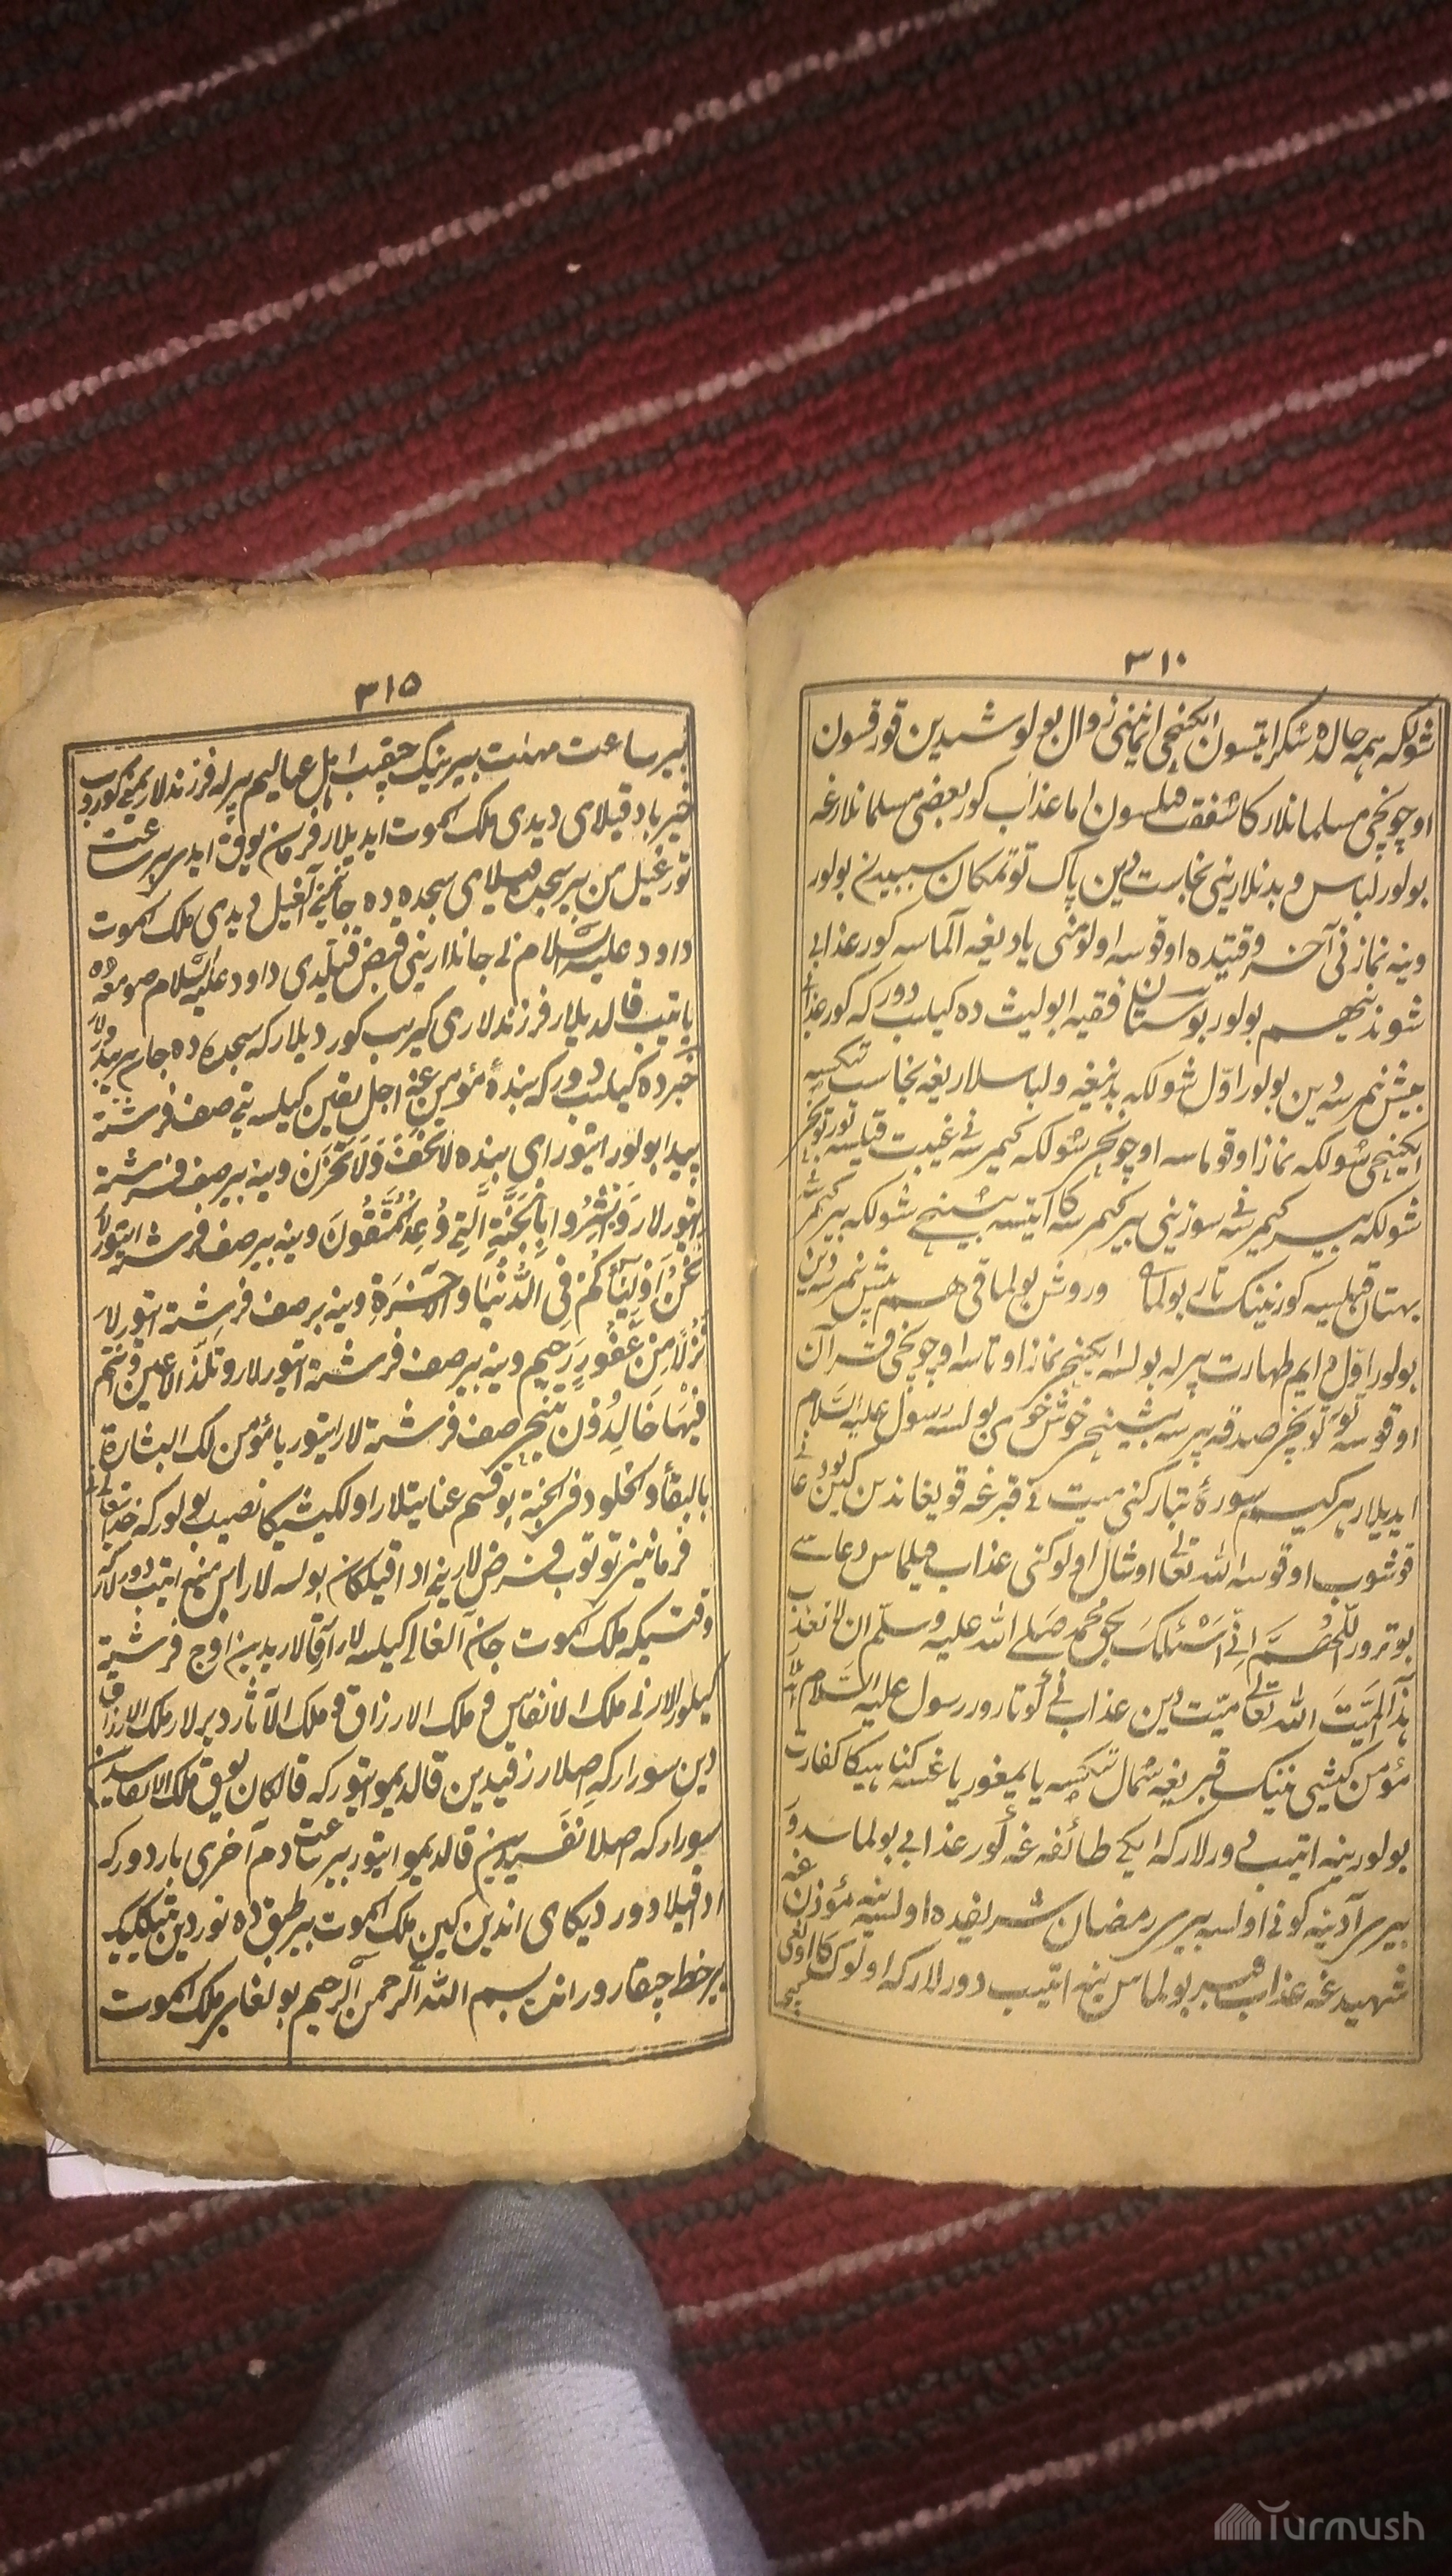 ٣١٠
شولکه همه حالده شکر ایتسون ایکنچی ایماننی زوال بولوشیدین قورقسون
اوچونچی مسلمانلارکا شفقت قیلسون اما عذاب کور بعضی مسلمانلارغه
بولور لباس و بدنلارینی نجاست دین پاک توتمکان سببیدین بولور
وینه نمازنی آخر وقتیده اوقوسه اولومنی یادیغه آلماسه کور عذابی
شوندینهم بولور بوستان فقیه ابولیث ده کیلیب دور که کور عذابی
بیش نمرسه دین بولور اوّل شولکه بدنیغه ولباسلاریغه نجاست تیکسه
ایکینچی شولکه نماز اوقوماسه اوچونچی شولکه کیمرسه نی غیبت قیلسه تورتونچی
شولکه بیر کیمرسه نی سوزینی بیر کیمرسه کا ایتسه بیشینچی شولکه بیر کیمرسه
بهتان قیلسه کورنینک تار بولماقی وروشن بولماقی هم بیش نمرسه دین
بولور اوّل دایم طهارت بیرله بولسه ایکینچی نماز اوتاسه اوچونچی قرآن
اوقوسه تورتونچی صدقه بیرسه بیشینچی خوش خوی بولسه رسول علیه السلام
ایدیلار هر کیم سورۀ تبارکنی میت نی قبرغه قویغاندین کین
قوشوب اوقوسه الله تعالی اوشال اولوکنی عذاب قیلماس دعاسی
بوترور اللّهمّ انّی اسئلک بحق محمد صلی الله علیه وسلّم ان لا تعذّب
هذا المیّت الله تعالی میّت دین عذاب نی کوتارور رسول علیه السلام
مؤمن کیشی نینک قبریغه شمال تیکسه یا یمغور یاغسه کناهیکا کفارت
بولور ینه ایتیب دورلار که ایکی طائفه غه کور عذابی بولماس
بیر آدینه کونی اولسه بیر رمضان شریفده اولسه ینه مؤذن غه
شهیدغه عذاب قبر بولماس ینه ایتیب دورلار که اولوک کا
٣١٥
بیر ساعت مهلت بیرینک چقیب اهل عیالیم بیرله فرزندلاریمنی کوروب
خیرباد قیلای دیدی ملک الموت ایدیلار فرمان یوق ایدی بیر ساعت
تورغیل من بیر سجده قیلای سجده ده جانیمنی آلغیل دیدی ملک الموت
داود علیه السلام نی جانلارینی قبض قیلدی داود علیه السلام صومعه ده
یاتیب قالدیلار فرزندلاری کیریب کوردیلار که سجده ده جان بیریبدورلار
خبرده کیلیب دور که بندۀ مؤمن غه اجل یقین کیلسه یتی صف فرشته
پیدا بولور ایتور ای بنده لا تخف ولا تحزن وینه بیر صف فرشته
ایتورلار وَبَشِّرُوا بِالْجَنَّةِ الَّتِی وُعِدَ الْمُتَّقُونَ وینه بیر صف فرشته ایتورلار
نَحْنُ اَوْلِیٰٓاؤُکُمْ فِی الدُّنْیَا وَالْاٰخِرَةِ وینه بیر صف فرشته ایتورلار
نُزُلًا مِنْ غَفُورٍ رَحِیمٍ وینه بیر صف فرشته ایتورلار وتلذّ الاعین وانتم
فِیْهَا خَالِدُوْنَ بیشینچی صف فرشته لار ایتور یا مؤمن لک البشارة
بالبقاء والخلود فی الجنة بو قسم عنایتلار اول کیشیکا نصیب بولور که خدای تعالی
فرمانینی توتوب فرض لارینی ادا قیلکان بولسه
وقتیکه ملک الموت جان آلغالی کیلسه لار آقالاریدین اوچ فرشته
کیلورلار نی ملک الانفاس ملک الارزاق ملک الآثار دیرلار ملک الارزاق
دین سورار که اصلا رزقیدین قالدیمو ایتور که قالکان یوق ملک الانفاسدین
سورار که اصلا نفسیدین قالدیمو ایتور بیر ساعت دم آخری بار دور که
ادا قیلادور دیکای اندین کین ملک الموت بیر طبق ده نوردین
بیر خط چیقارور انده بسم الله الرحمن الرحیم بولغای ملک الموت
Turmush